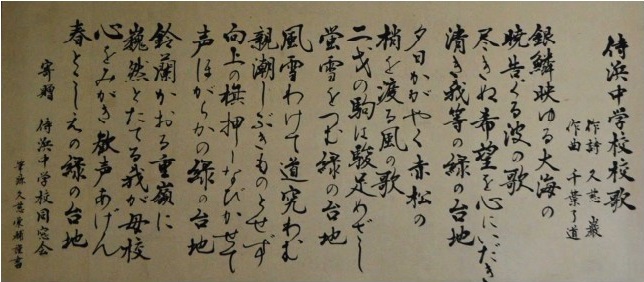 侍浜中学校校歌
作詩 久慈 巌
作曲 千葉了道
銀鱗映ゆる大海の
暁告ぐる波の歌
尽きぬ希望を心にいだき
清き我等の緑の台地
夕日かがやく赤松の
梢を渡る風の歌
二、の駒は駿足めざし
蛍雪をつむ緑の台地
風雪わけて道究わむ
親潮しぶきものとせず
向上の旗押しなびかせて
声ほがらかの緑の台地
鈴蘭かおる重嶺に
巍然とたてる我が母校
心をみがき歓声あげん
春とこしえの緑の台地
寄贈 侍浜中学校同窓会
久慈 謹書